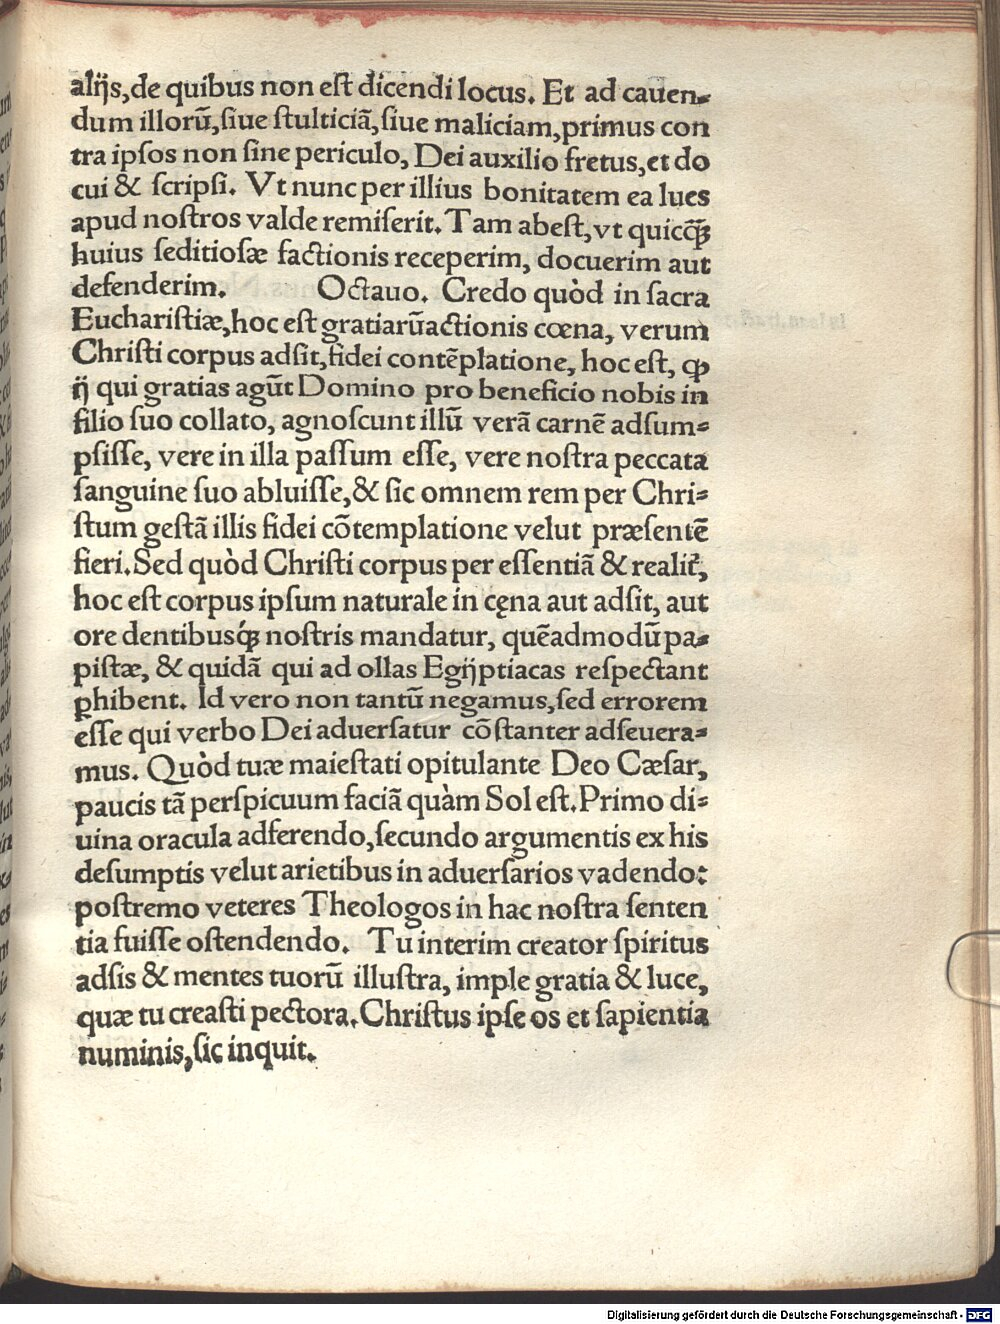 alijs, de quibus non eſt dicendi locus. Et ad cauen⸗
dum illorū, ſiue ſtulticiā, ſiue maliciam, primus con
tra ipſos non ſine periculo, Dei auxilio fretus, et do
cui & ſcripſi. Vt nunc per illius bonitatem ea lues
apud noſtros valde remiſerit. Tam abeſt, vt quicꝗ̃ꝫ
huius ſeditioſæ factionis receperim, docuerim aut
defenderim. Octauo. Credo quòd in ſacra
Euchariſtiæ, hoc eſt gratiarūactionis cœna, verum
Chriſti corpus adſit, fidei contēplatione, hoc eſt, ꝙ
ij qui gratias agūt Domino pro beneficio nobis in
filio ſuo collato, agnoſcunt illū verā carnē adſum⸗
pſiſſe, vere in illa paſſum eſſe, vere noſtra peccata
ſanguine ſuo abluiſſe, & ſic omnem rem per Chri⸗
ſtum geſtā illis fidei cōtemplatione velut præſentē
fieri. Sed quòd Chriſti corpus per eſſentiā & realit̃,
hoc eſt corpus ipſum naturale in cęna aut adſit, aut
ore dentibusq́ꝫ noſtris mandatur, quēadmodū pa⸗
piſtæ, & quidā qui ad ollas Egijptiacas reſpectant
ꝑhibent. Id vero non tantū negamus, ſed errorem
eſſe qui verbo Dei aduerſatur cōſtanter adſeuera⸗
mus. Quòd tuæ maieſtati opitulante Deo Cæſar,
paucis tā perſpicuum faciā quàm Sol eſt. Primo di⸗
uina oracula adferendo, ſecundo argumentis ex his
deſumptis velut arietibus in aduerſarios vadendo:
poſtremo veteres Theologos in hac noſtra ſenten
tia fuiſſe oſtendendo. Tu interim creator ſpiritus
adſis & mentes tuorū illuſtra, imple gratia & luce,
quæ tu creaſti pectora. Chriſtus ipſe os et ſapientia
numinis, ſic inquit.
Digitalisierung gefördert durch die Deutsche Forschungsgemeinschaft - DFG